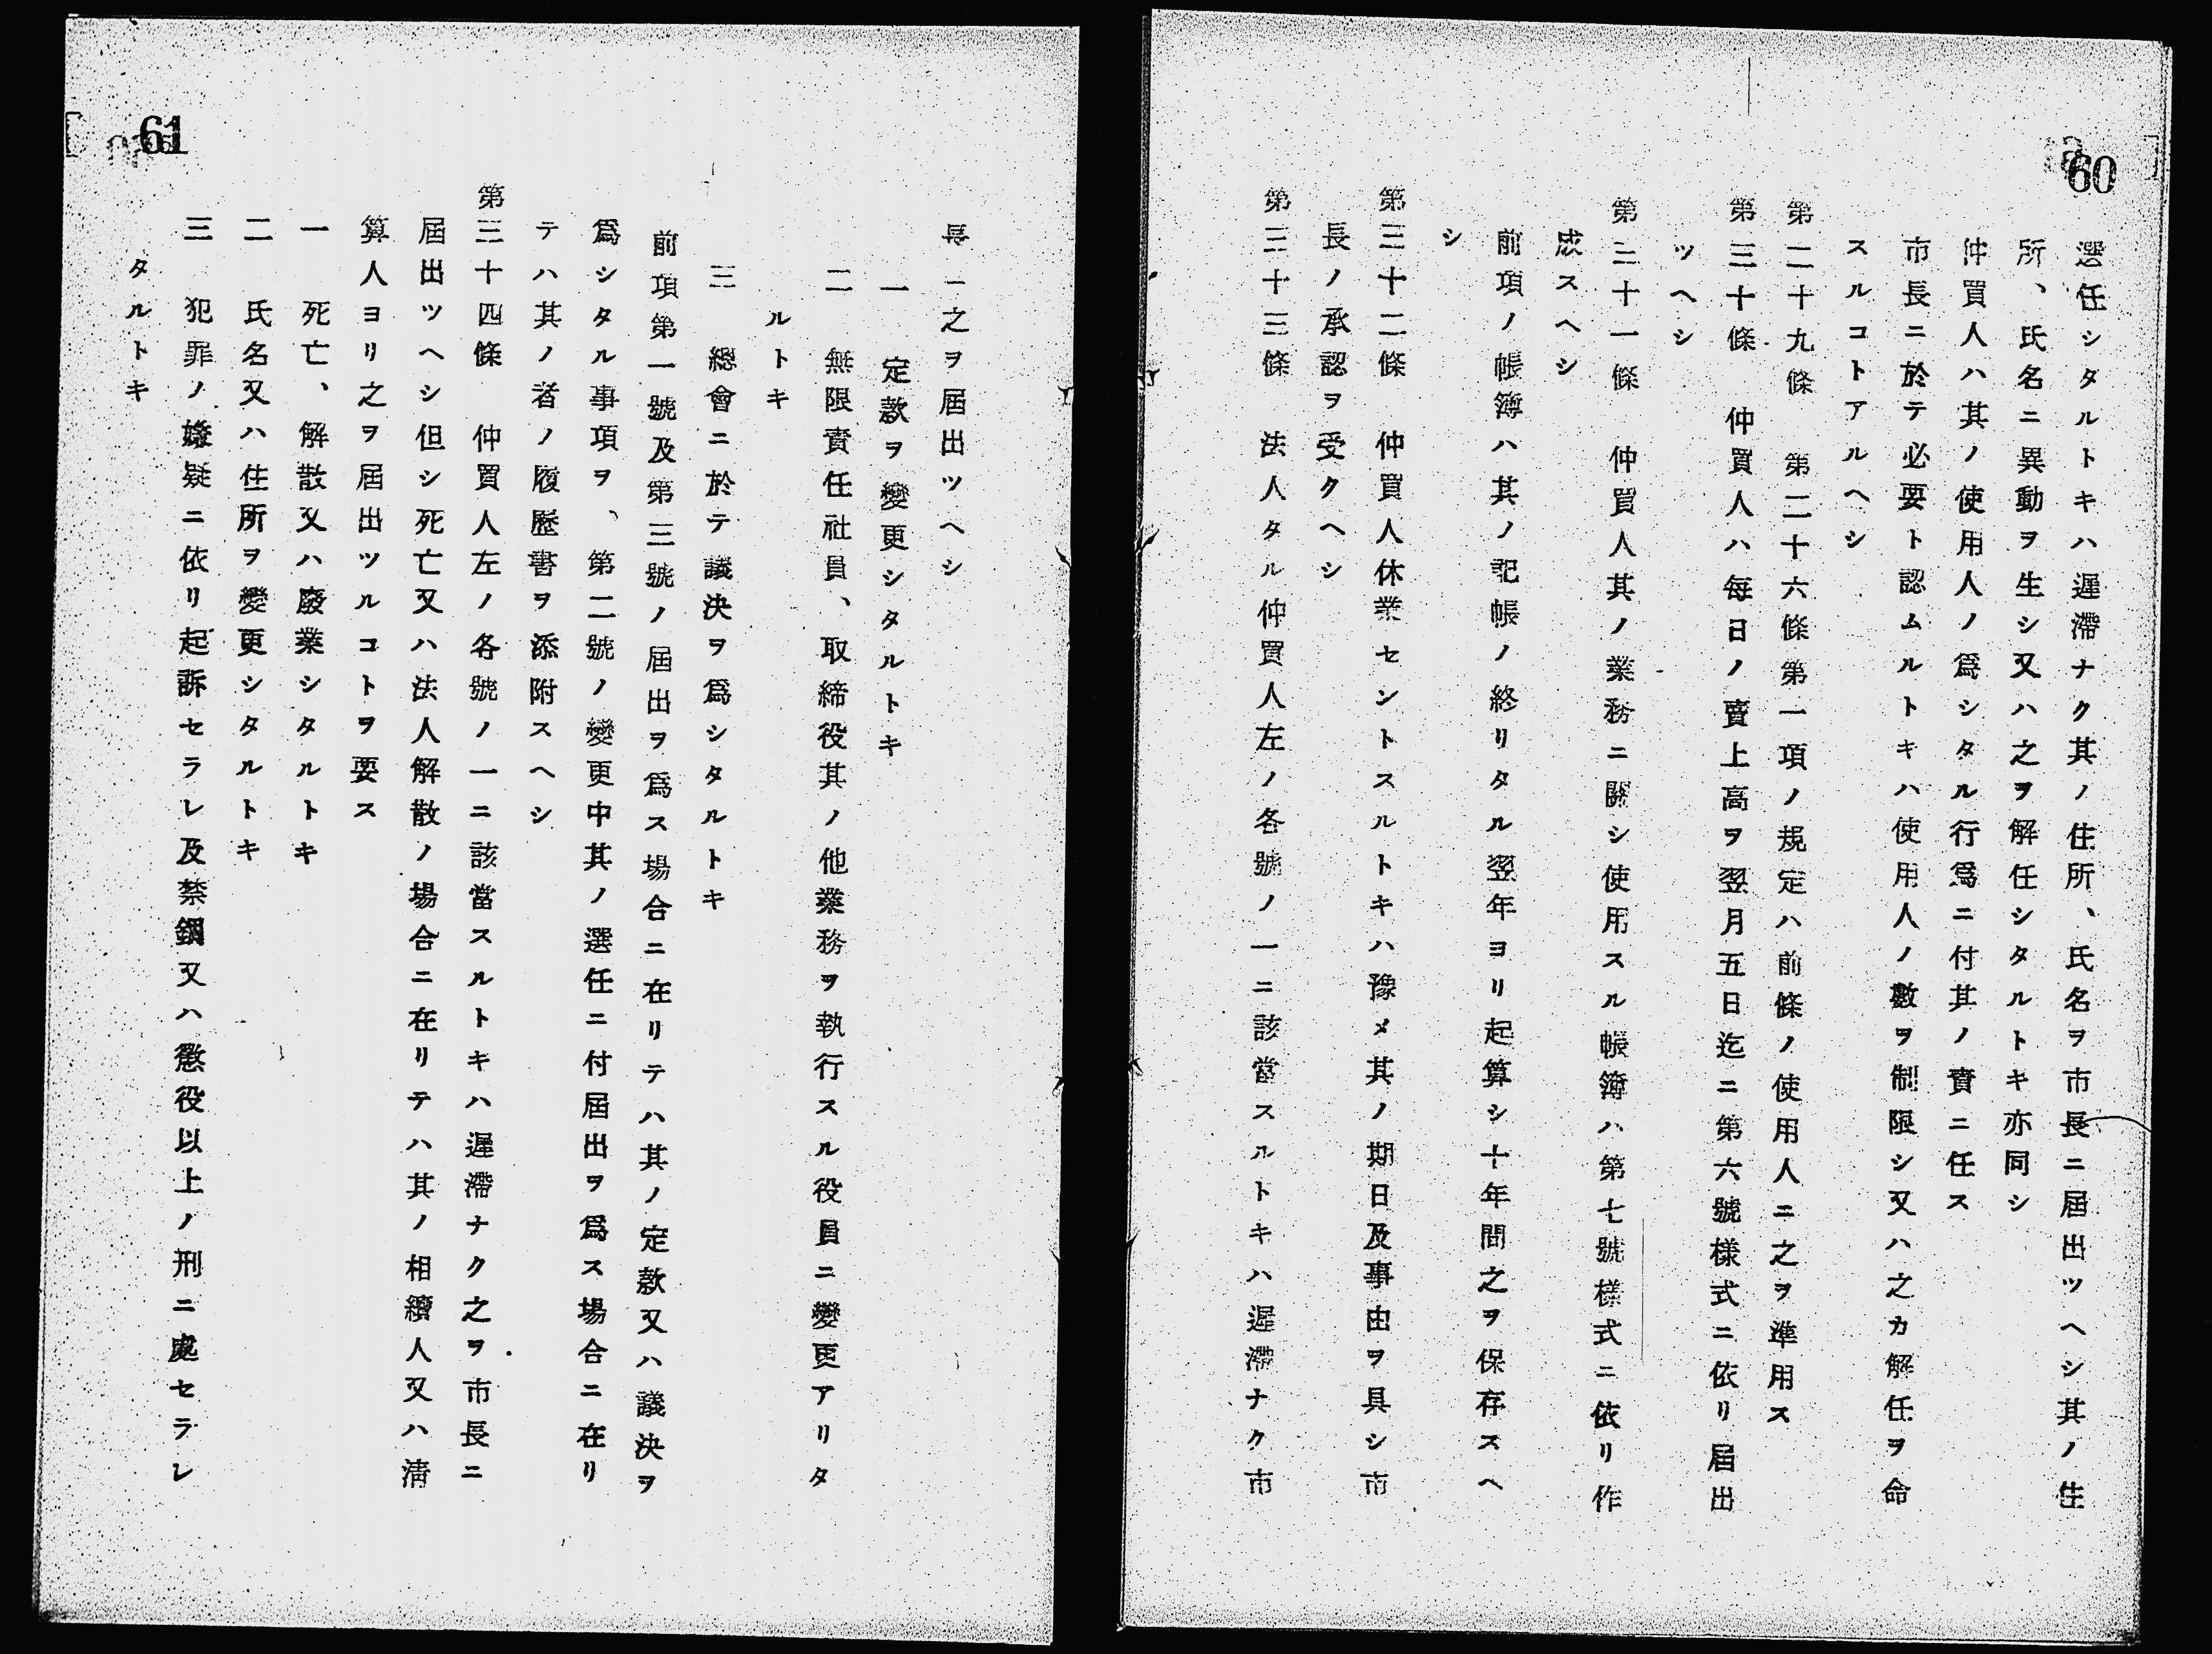 60
選任シタルトキハ遲滯ナク其ノ住所、氏名ヲ市長ニ屆出ツヘシ其ノ住
所、氏名ニ異動ヲ生シ又ハ之ヲ解任シタルトキ亦同シ
仲買人ハ其ノ使用人ノ爲シタル行爲ニ付其ノ責ニ任ス
市長ニ於テ必要ト認ムルトキハ使用人ノ數ヲ制限シ又ハ之カ解任ヲ命
スルコトアルヘシ
第二十九條　第二十六條第一項ノ規定ハ前條ノ使用人ニ之ヲ準用ス
第三十條　仲買人ハ每日ノ賣上高ヲ翌月五日迄ニ第六號樣式ニ依リ屆出
ツヘシ
第三十一條　仲買人其ノ業務ニ關シ使用スル帳簿ハ第七號樣式ニ依リ作
成スヘシ
前項ノ帳簿ハ其ノ記帳ノ終リタル翌年ヨリ起算シ十年間之ヲ保存スヘ
シ
第三十二條　仲買人休業セントスルトキハ豫メ其ノ期日及事由ヲ具シ市
長ノ承認ヲ受クヘシ
第三十三條　法人タル仲買人左ノ各號ノ一ニ該當スルトキハ遲滯ナク市
61
長ニ之ヲ屆出ツヘシ
一　定款ヲ變更シタルトキ
二　無限責任社員、取締役其ノ他業務ヲ執行スル役員ニ變更アリタ
ルトキ
三　總會ニ於テ議決ヲ爲シタルトキ
前項第一號及第三號ノ屆出ヲ爲ス場合ニ在リテハ其ノ定款又ハ議決ヲ
爲シタル事項ヲ、第二號ノ變更中其ノ選任ニ付屆出ヲ爲ス場合ニ在リ
テハ其ノ者ノ履歷書ヲ添附スヘシ
第三十四條　仲買人左ノ各號ノ一ニ該當スルトキハ遲滯ナク之ヲ市長ニ
屆出ツヘシ但シ死亡又ハ法人解散ノ場合ニ在リテハ其ノ相續人又ハ淸
算人ヨリ之ヲ屆出ツルコトヲ要ス
一　死亡、解散又ハ廢業シタルトキ
二　氏名又ハ住所ヲ變更シタルトキ
三　犯罪ノ嫌疑ニ依リ起訴セラレ及禁錮又ハ懲役以上ノ刑ニ處セラレ
タルトキ